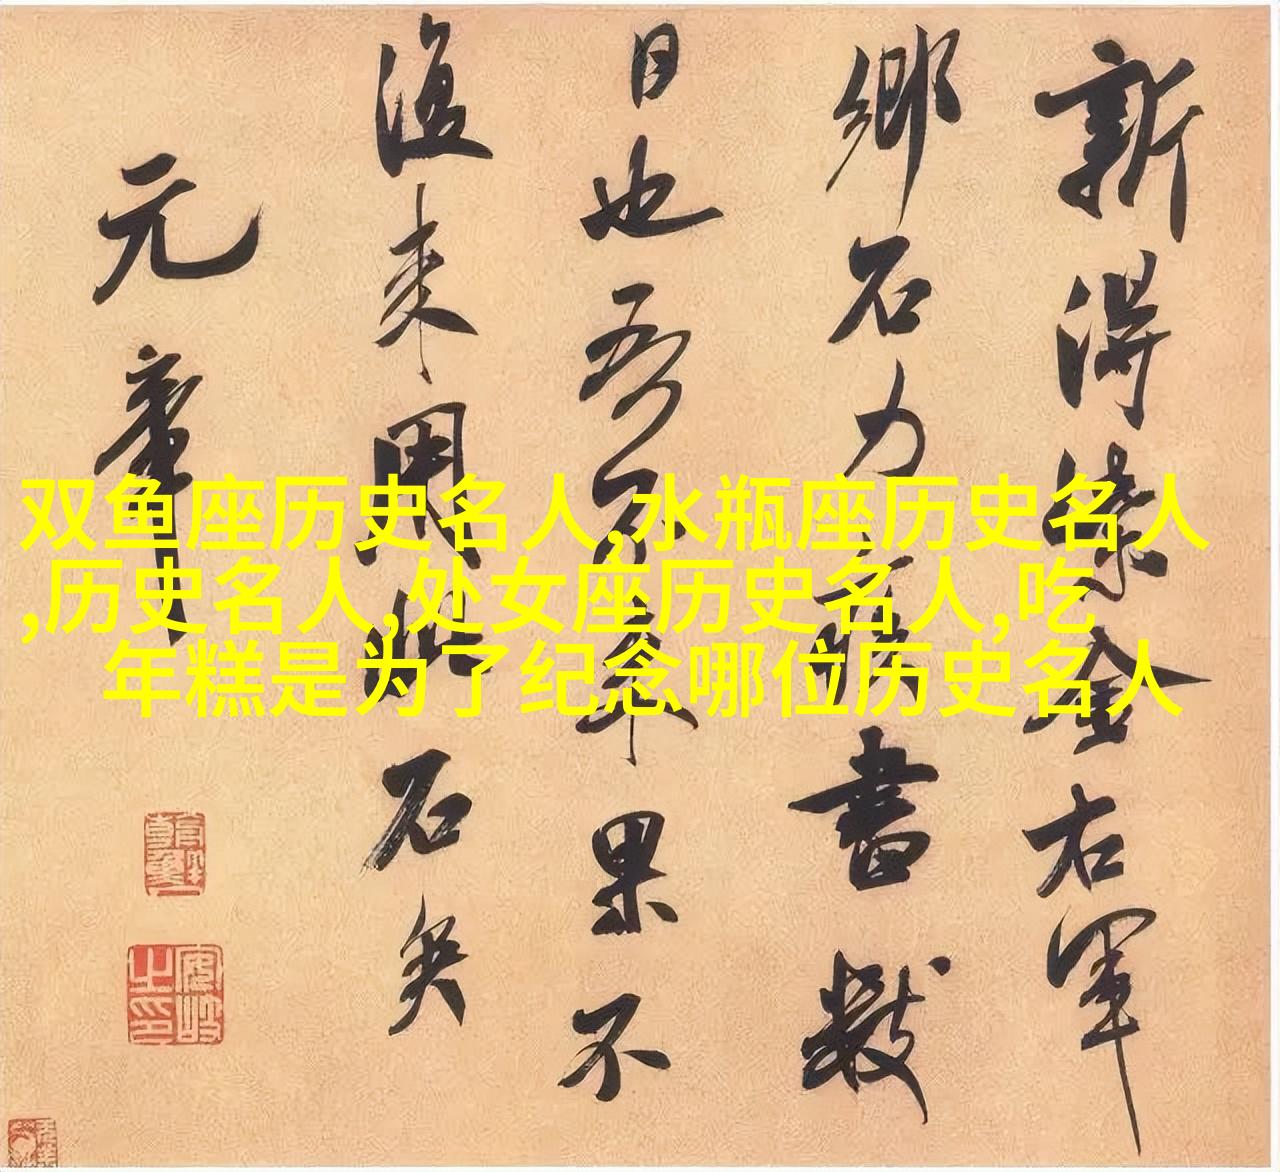 新得紫金右軍
鄉石力疾書數
日也吾不來果不
復來用此石矣
元章
双鱼座历史名人,水瓶座历史名人
,历史名人,处女座历史名人,吃
年糕是为了纪念哪位历史名人